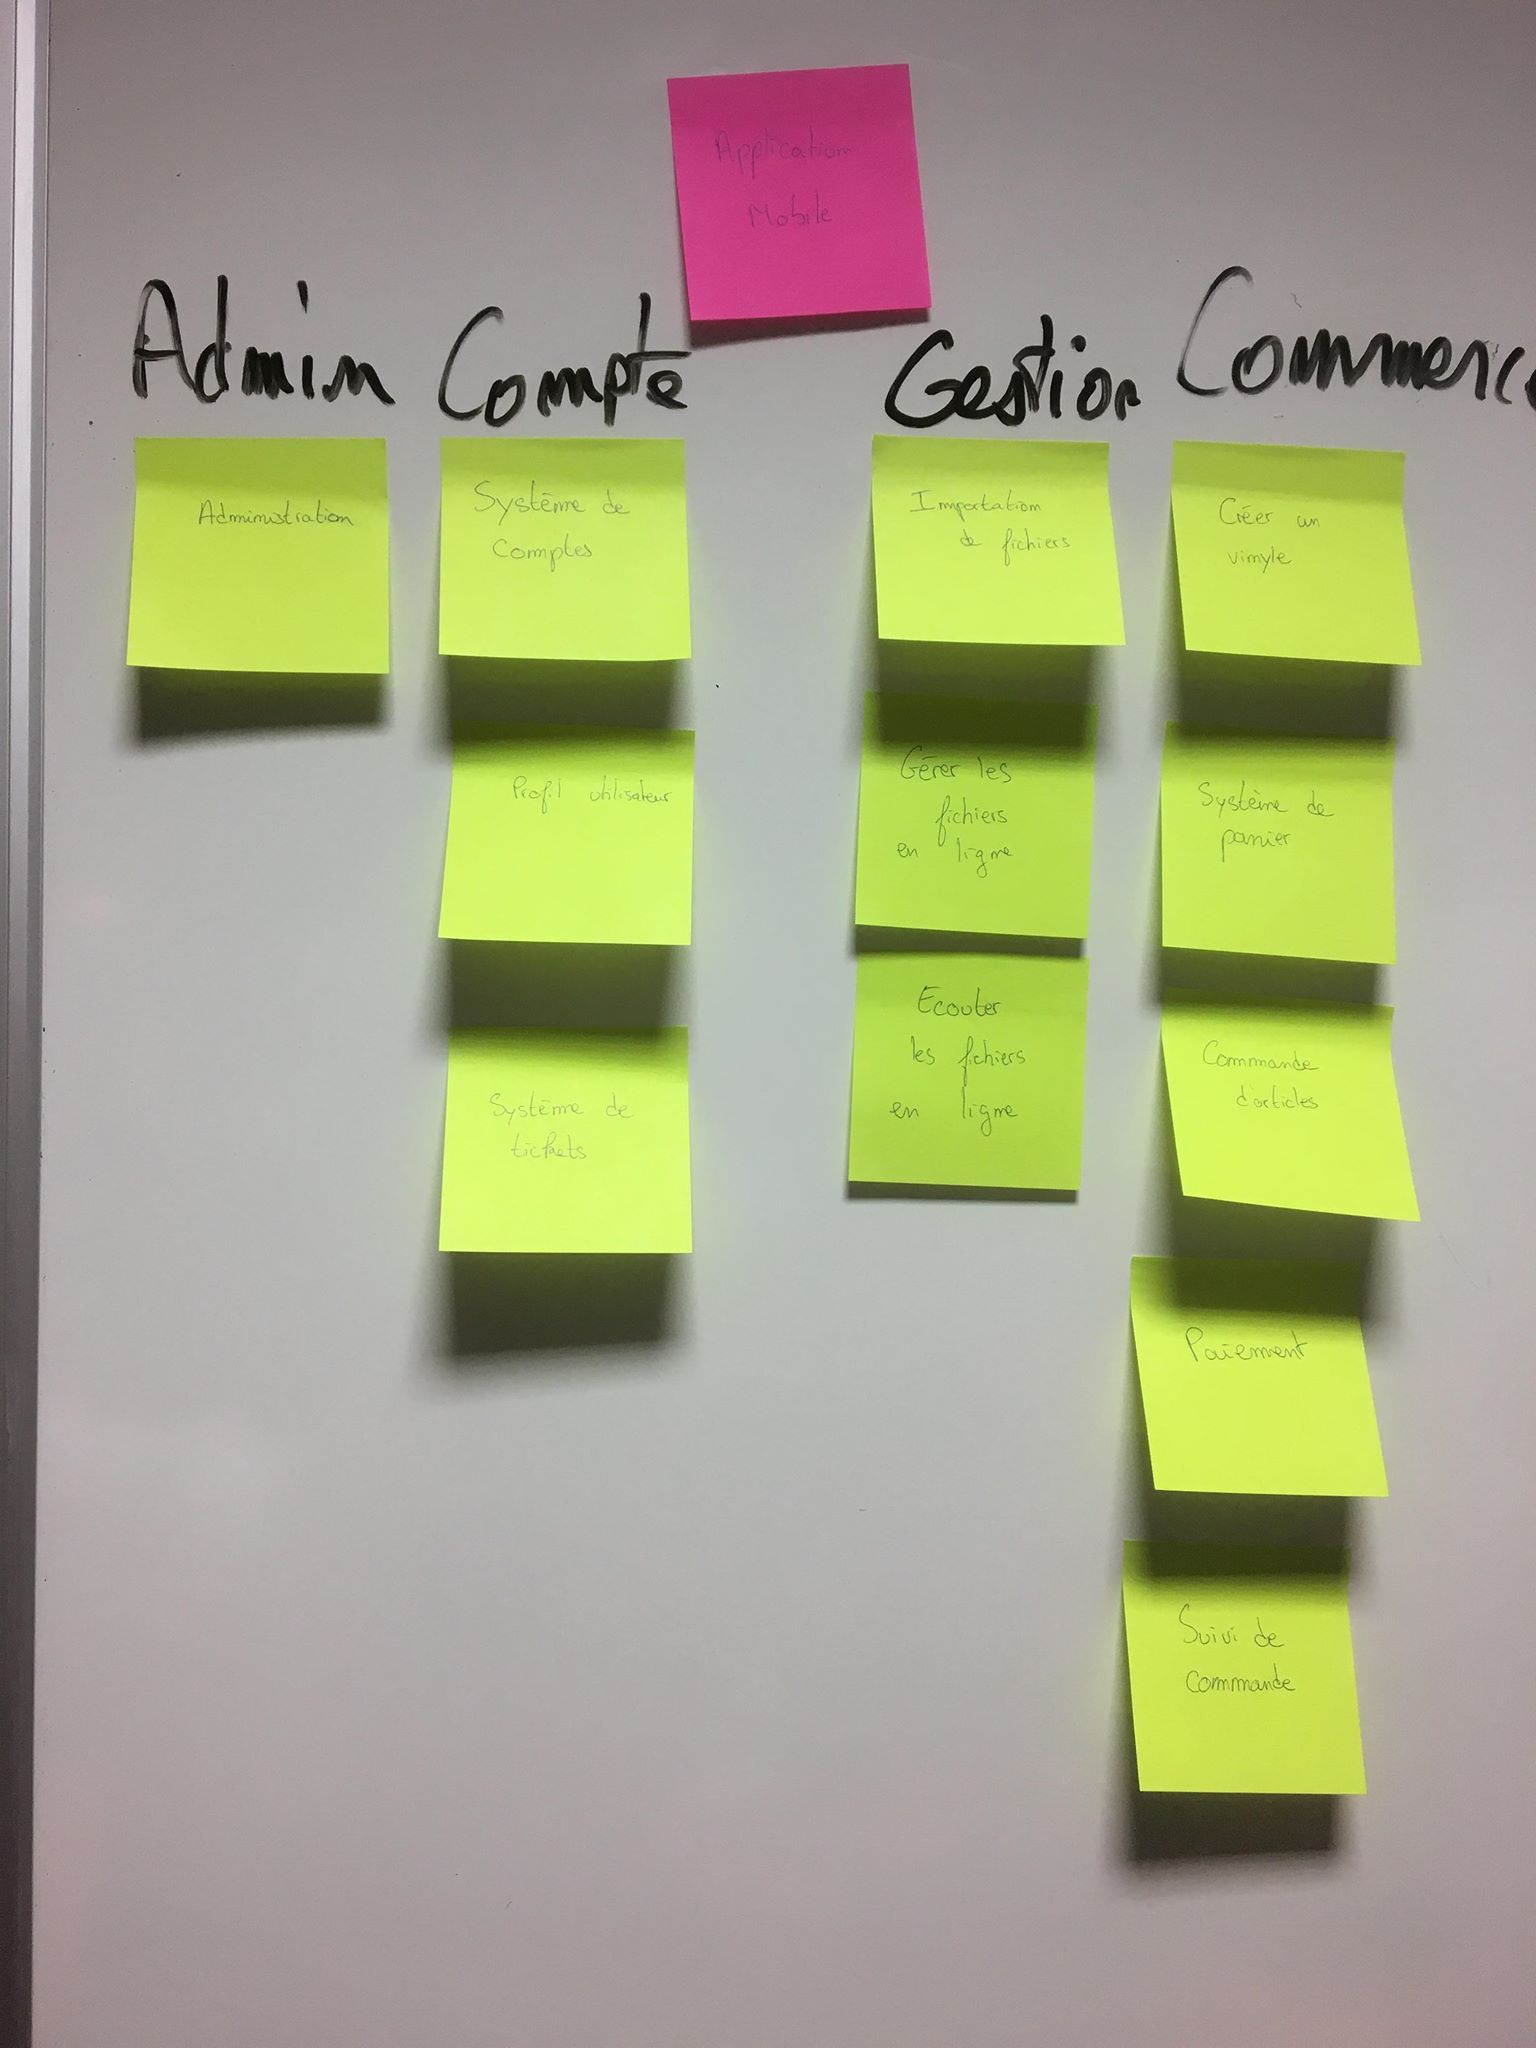 Application
Mobile
Admin
Compte
Gestion
Commerce
Administration
Système de
comptes
Profil utilisateur
Système de
tickets
Importation
de fichiers
Gérer les
fichiers
en ligne
Ecouter
les fichiers
en ligne
Créer un
vinyle
Système de
panier
Commande
d'articles
Paiement
Suivi de
commande